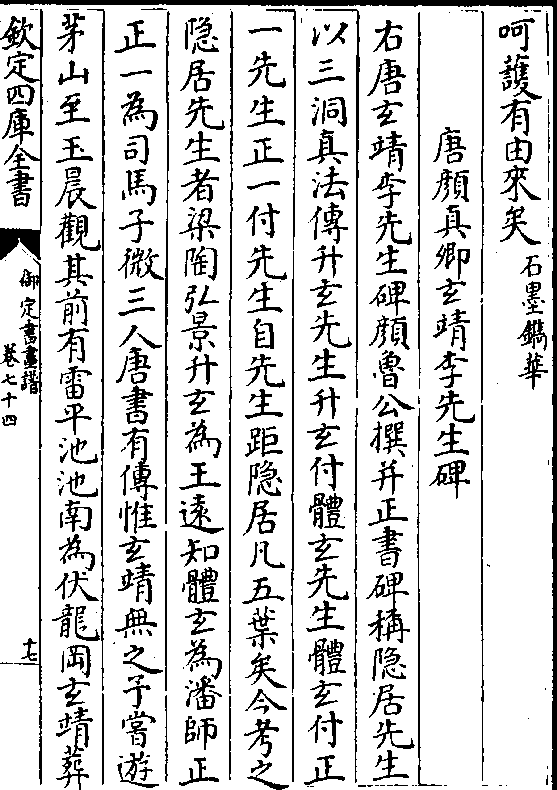 呵䕶有由來矣石墨鐫華
唐顔真卿玄靖李先生碑
右唐玄靖李先生碑顔魯公撰并正書碑稱隐居先生
以三洞真法傳升玄先生升玄付體玄先生體玄付正
一先生正一付先生自先生距隐居凡五葉矣今考之
隐居先生者梁陶弘景升玄為王逺知體玄為潘師正
正一為司馬子微三人唐書有傳惟玄靖無之予嘗遊
茅山至玉晨觀其前有雷平池池南為伏龍岡玄靖葬
欽定四庫全書
御定書畫譜
卷七十四
十七